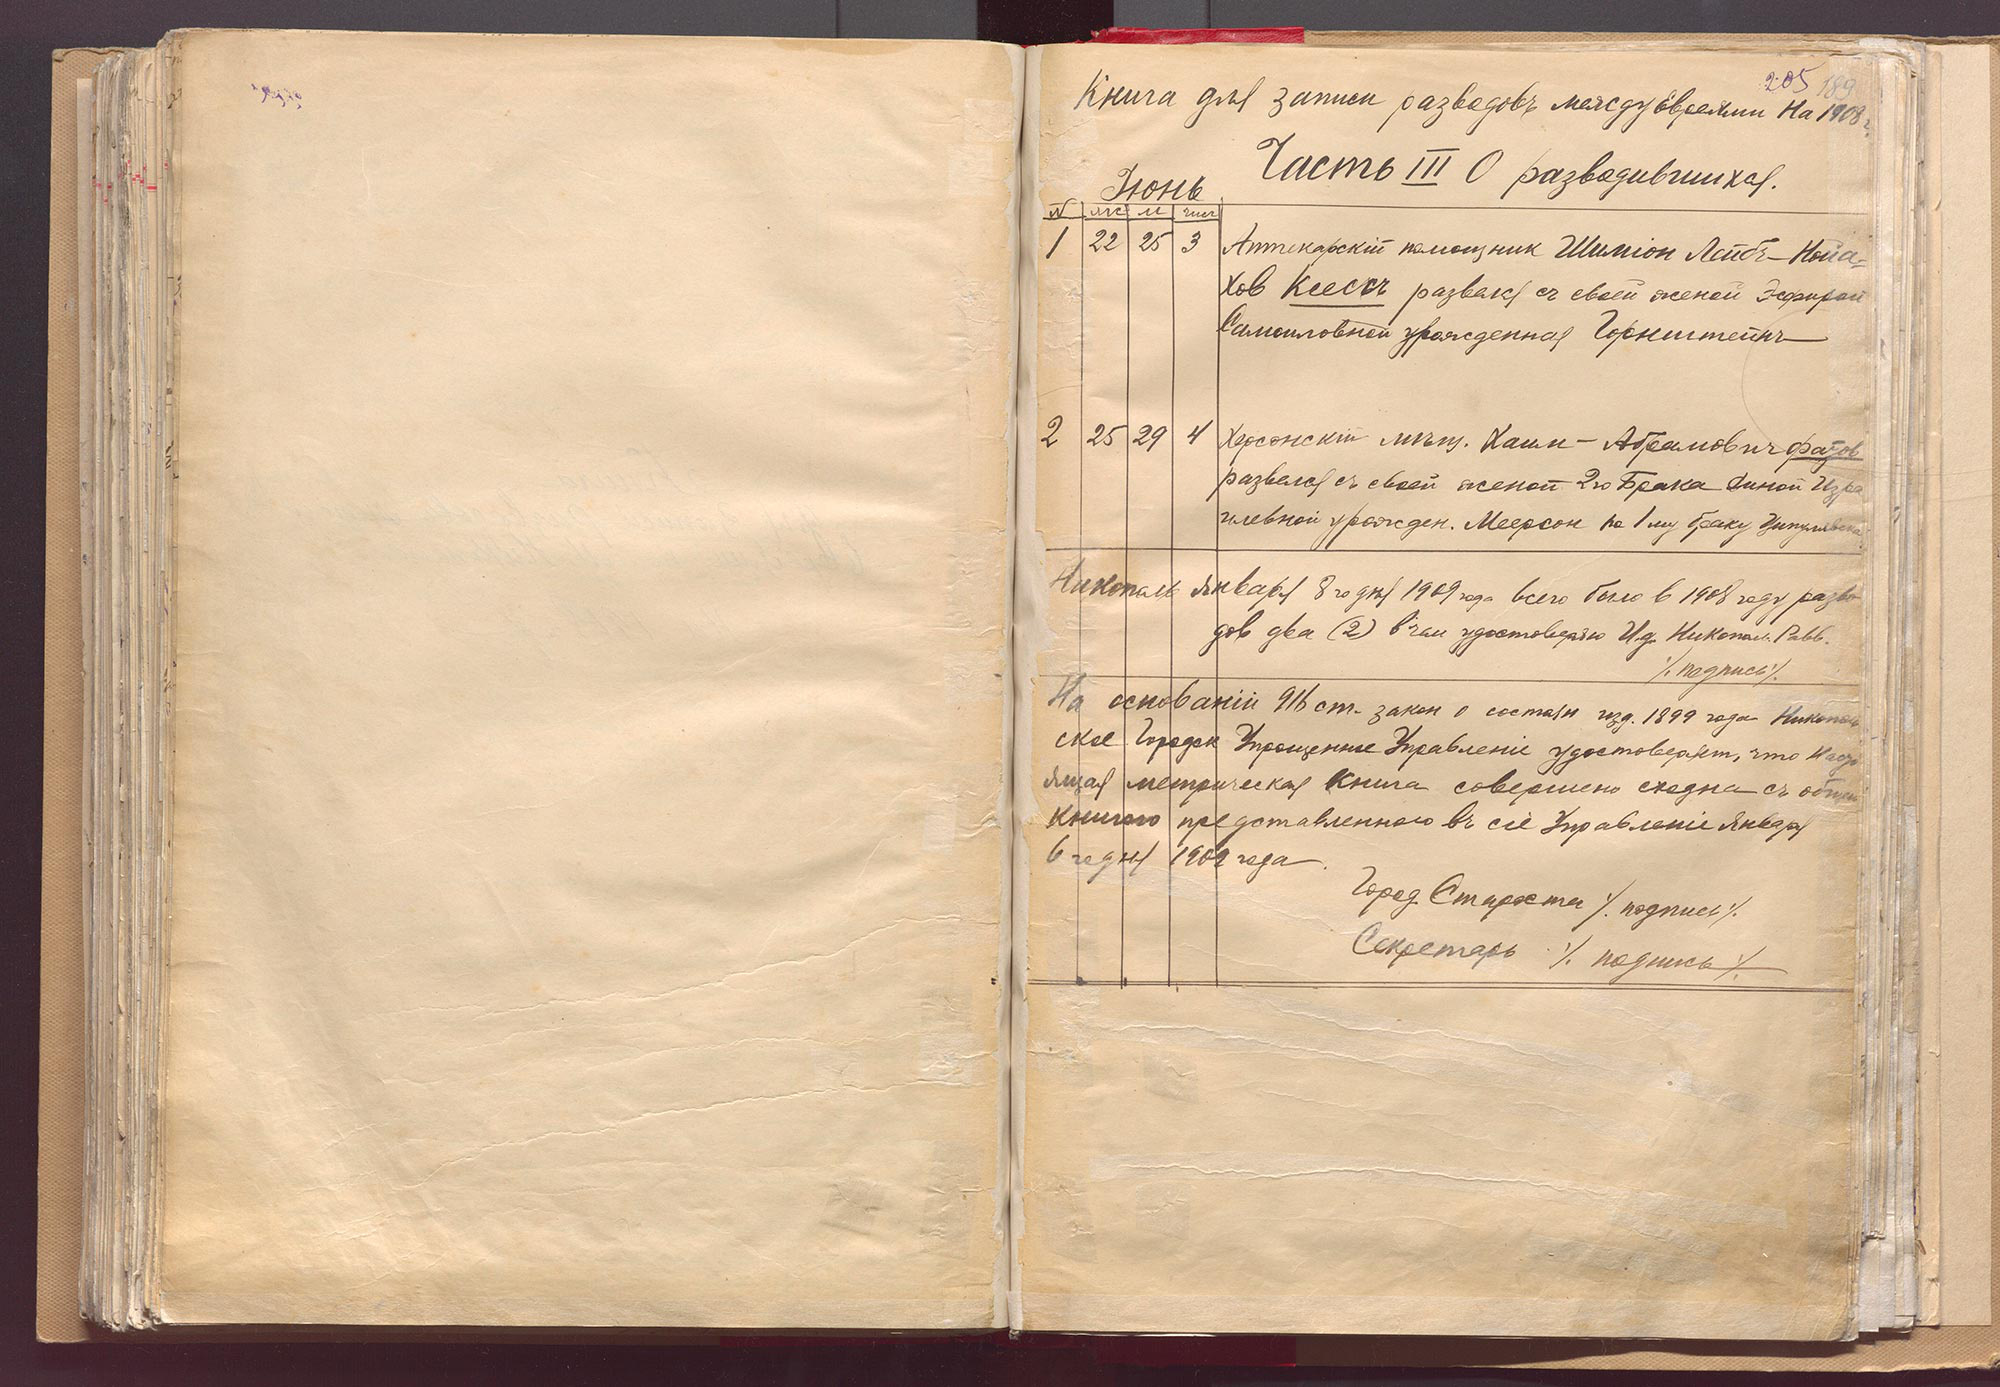 205 189
Книга для записи разводовъ между Евреями На 1908 г.
Часть III О разводившихся.
Июнь
№ мс м числ
1 22 25 3 Аптекарскій помощник Шиміон Лейбъ-Нова-
хов Ксессъ развелся съ своей женой Эсфирой
Самоиловной урожденная Горнштейнъ
2 25 29 4 Херсонскій мѣщ. Хаим-Абрамович
развелся съ своей женой 2го Брака Изра
илевной урожден. Меерсон по 1му браку
Никополь Января 8го дня 1909 года всего было в 1908 году разво
дов два (2) в чем удостоверяю И.д. Никопол. Равв.
/. подпись /.
На основаніи 916 ст. закон о состоян изд. 1899 года Никополь
ское Городск Упрощенное Управленіе удостоверяет, что насто
ящая метрическая Книга совершено сходна съ общей
Книгою представленною въ сіе Управленіе Января
6 го дня 1909 года.
Город. Староста /. подпись /.
Секретарь /. подпись /.